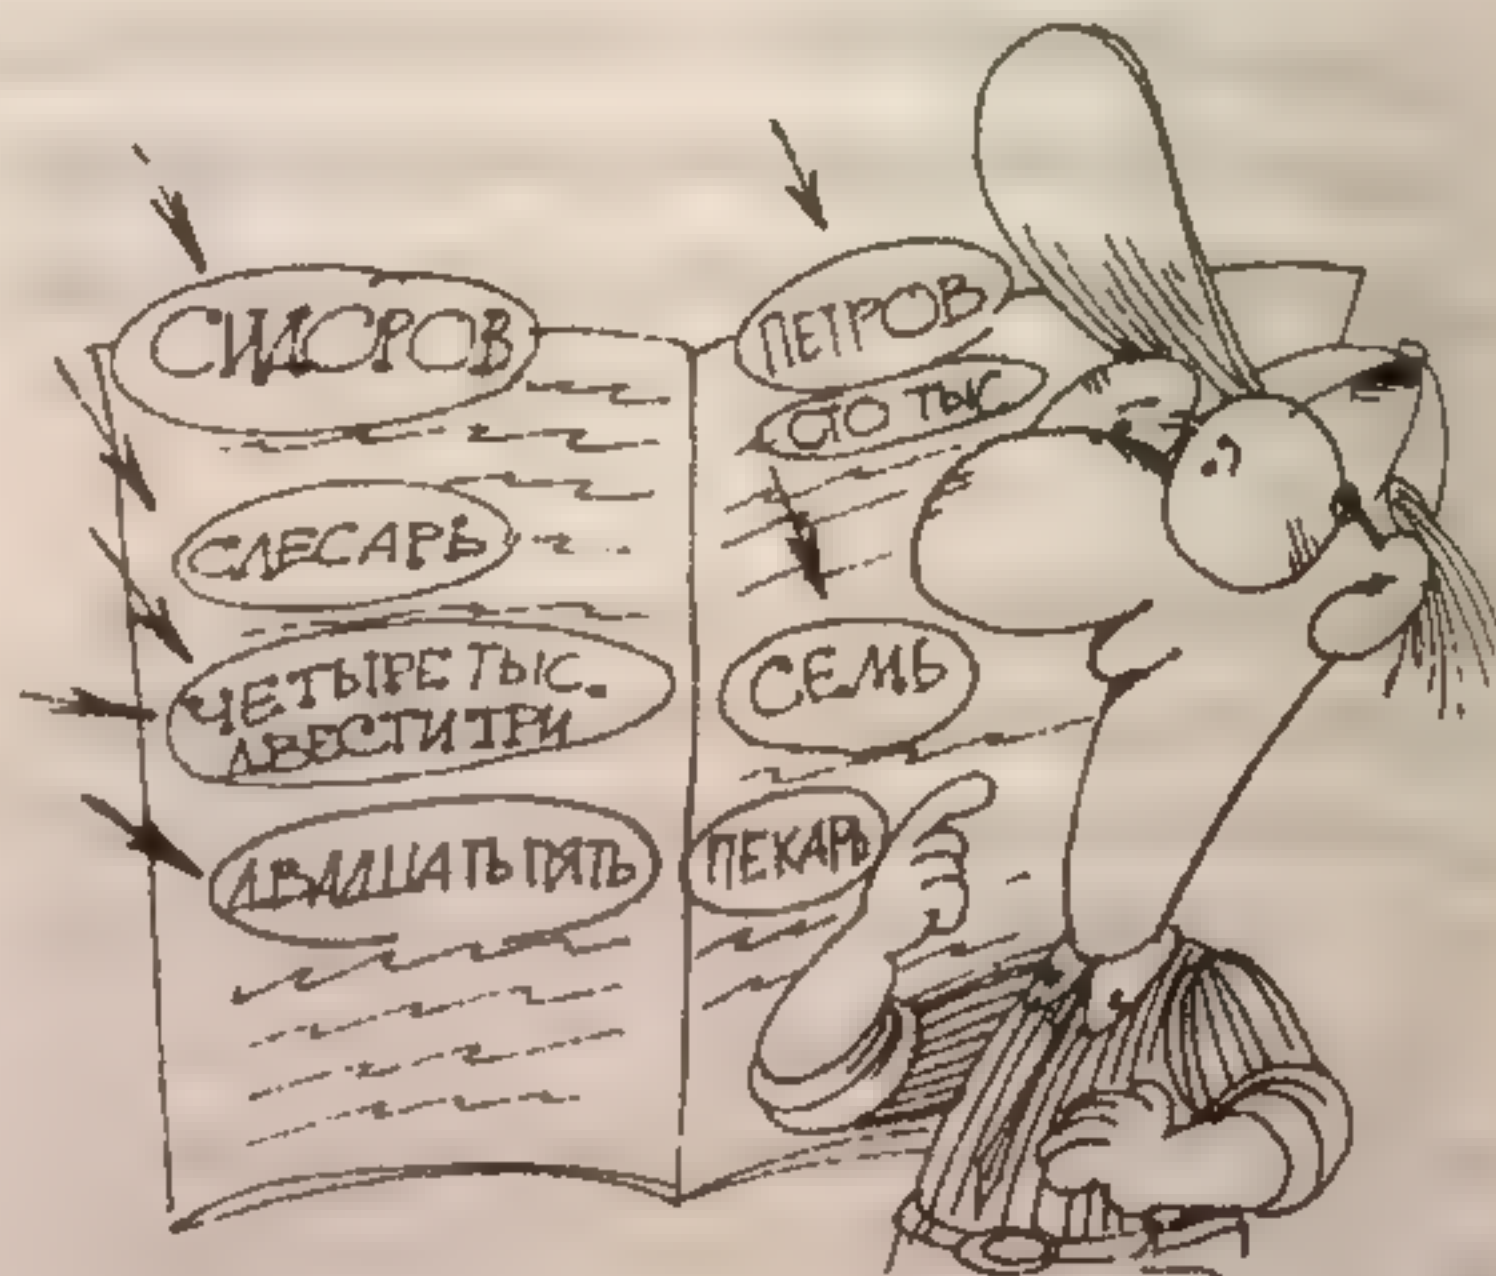 СИДОРОВ
СЛЕСАРЬ
ЧЕТЫРЕ ТЫС.
ДВЕСТИ ТРИ
ДВАДЦАТЬ ПЯТЬ
ПЕТРОВ
СТО ТЫС
СЕМЬ
ПЕКАРЬ